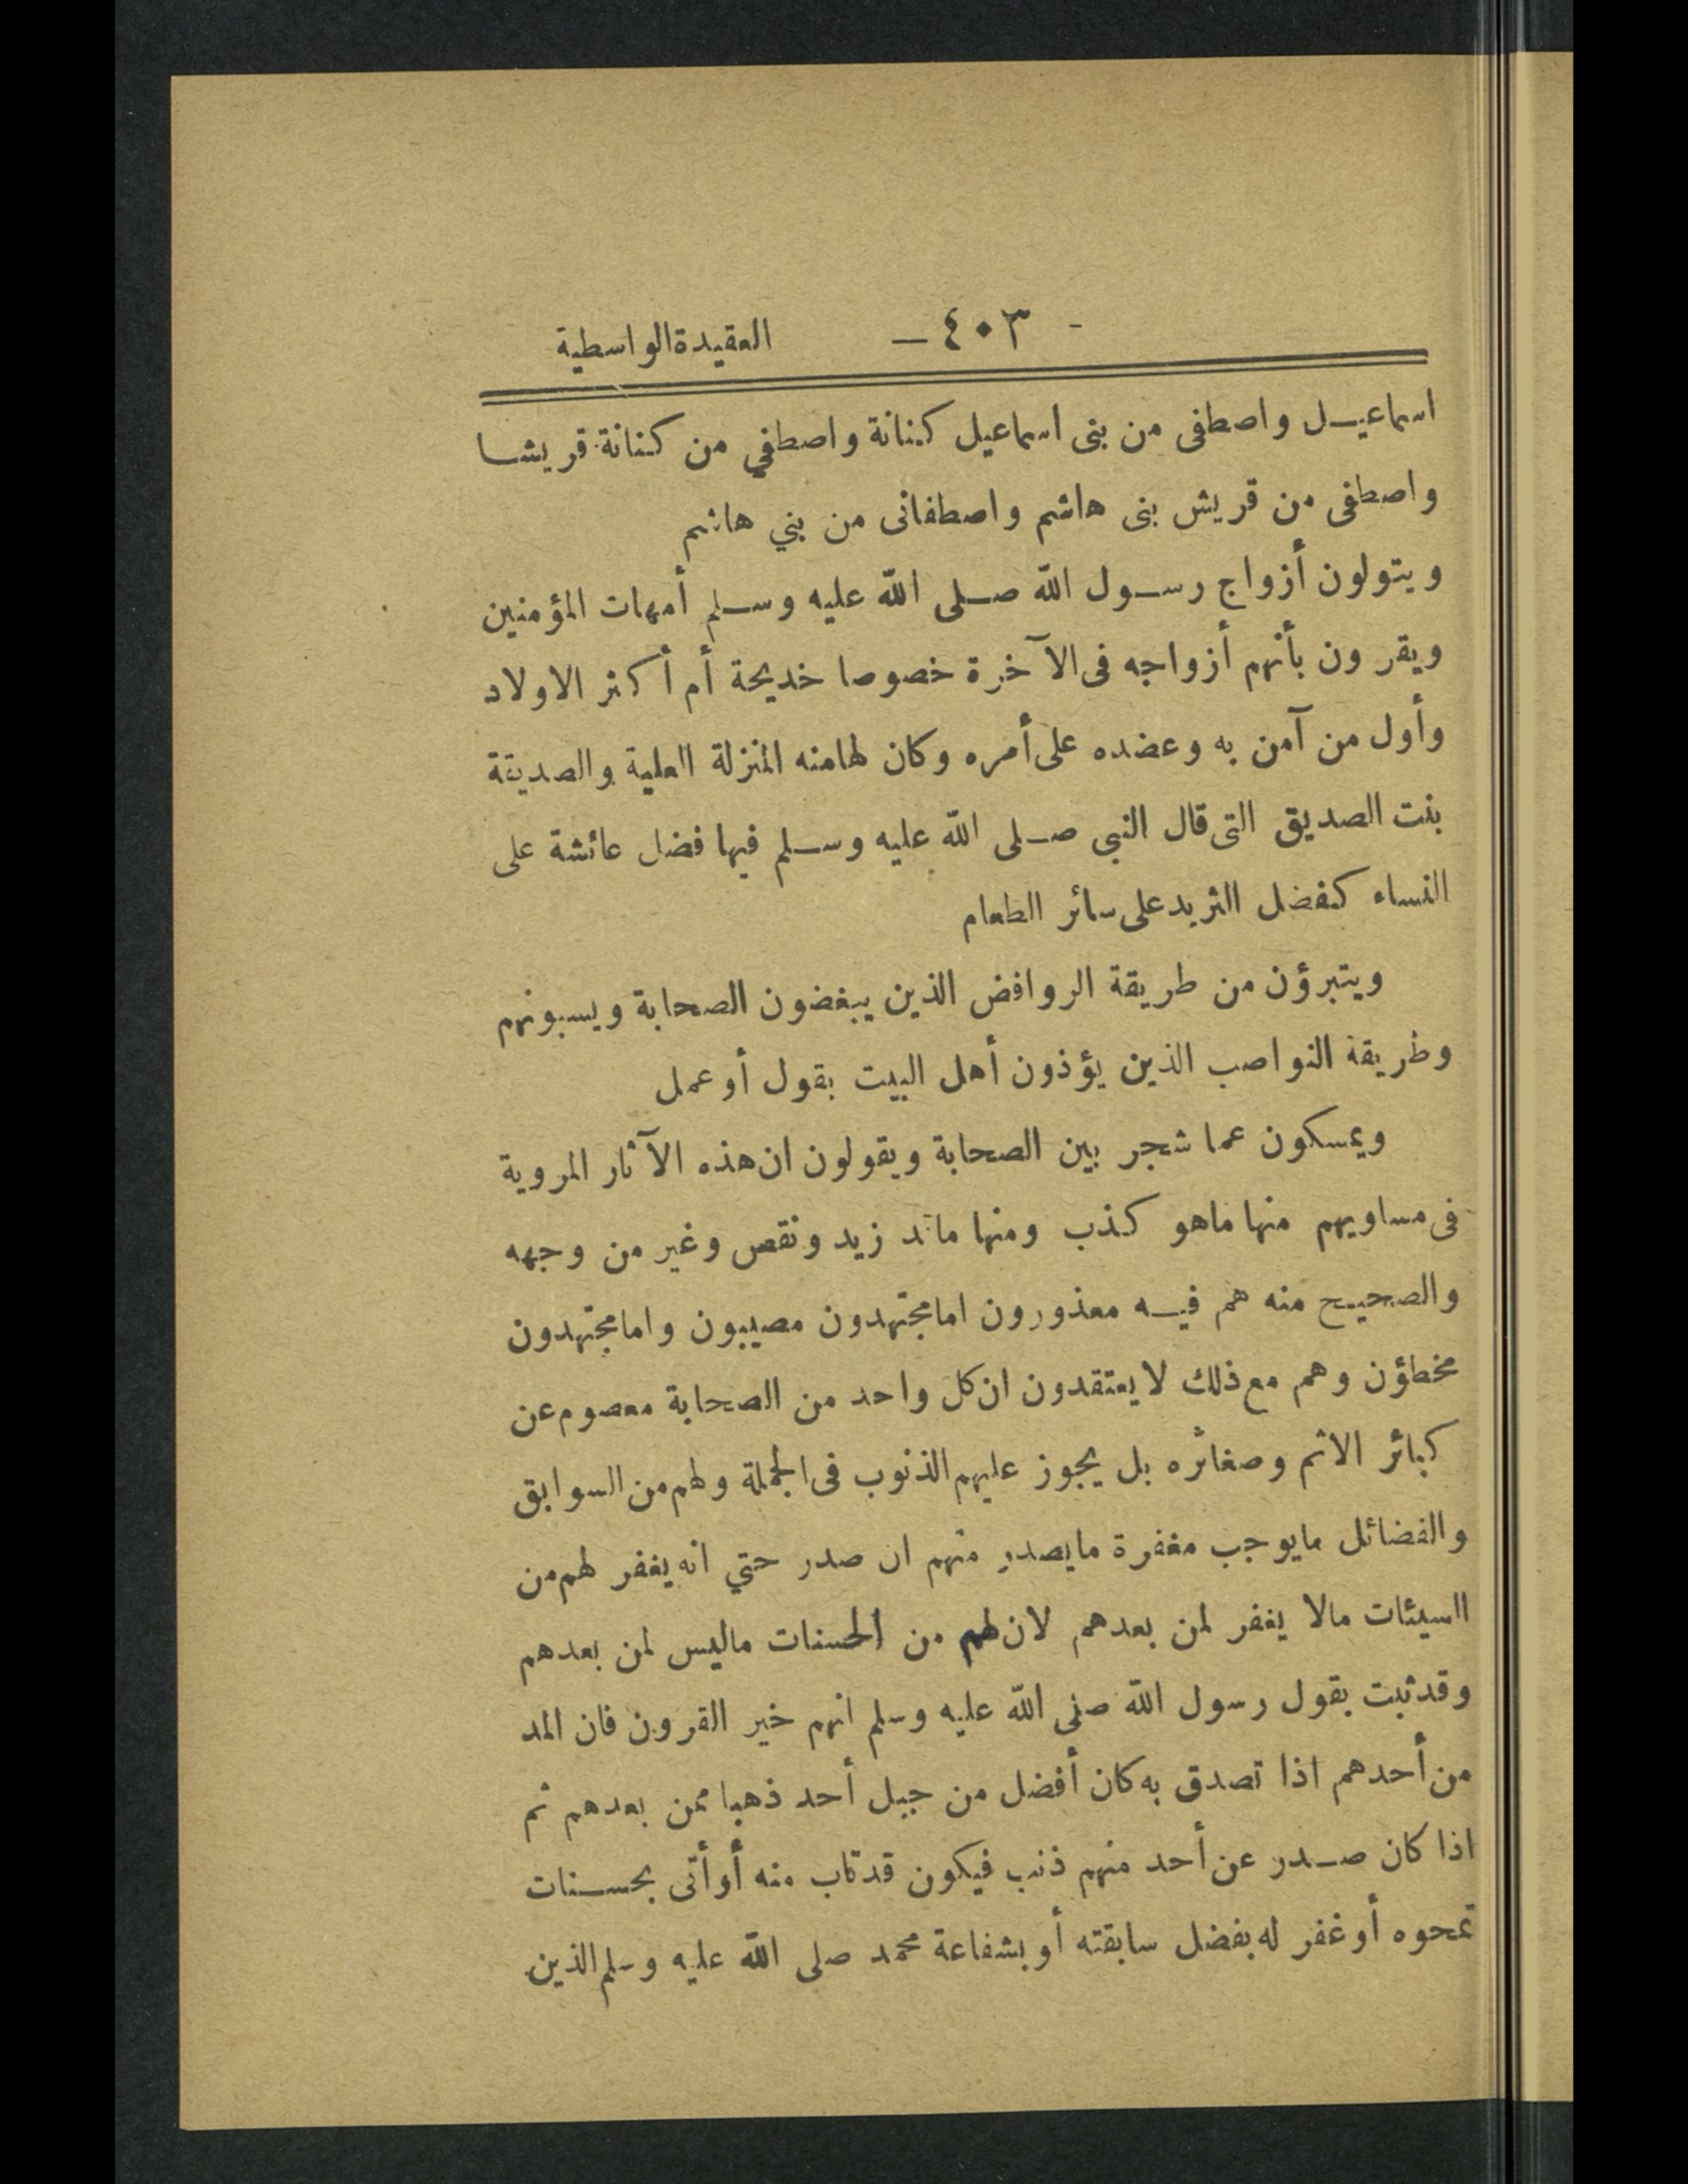 - ٤٠٣ - العقيدة الواسطية
اسماعيل واصطفى من بنى اسماعيل كنانة واصطفي من كنانة قريشا
واصطفى من قريش بنى هاشم واصطفانى من بني هاشم
ويتولون أزواج رسول الله صلى الله عليه وسلم أمهات المؤمنين
ويقرون بأنهم أزواجه فى الآخرة خصوصا خديجة أم أكثر الاولاد
وأول من آمن به وعضده على أمره وكان لها منه المنزلة العلية والصديقة
بنت الصديق التى قال النبى صلى الله عليه وسلم فيها فضل عائشة على
النساء كفضل الثريد على سائر الطعام
ويتبرؤن من طريقة الروافض الذين يبغضون الصحابة ويسبونهم
وطريقة النواصب الذين يؤذون أهل البيت بقول أو عمل
ويمسكون عما شجر بين الصحابة ويقولون ان هذه الآثار المروية
فى مساويهم منها ما هو كذب ومنها ما قد زيد ونقص وغير من وجهه
والصحيح منه هم فيه معذورون اما مجتهدون مصيبون واما مجتهدون
مخطؤن وهم مع ذلك لا يعتقدون ان كل واحد من الصحابة معصوم عن
كبائر الاثم وصغائره بل يجوز عليهم الذنوب فى الجملة ولهم من السوابق
والفضائل ما يوجب مغفرة ما يصدر منهم ان صدر حتي انه يغفر لهم من
السيئات مالا يغفر لمن بعدهم لان لهم من الحسنات ما ليس لمن بعدهم
وقد ثبت بقول رسول الله صلى الله عليه وسلم انهم خير القرون فان المد
من أحدهم اذا تصدق به كان أفضل من جبل أحد ذهبا ممن بعدهم ثم
اذا كان صدر عن أحد منهم ذنب فيكون قد تاب منه أو أتى بحسنات
تمحوه أو غفر له بفضل سابقته أو بشفاعة محمد صلى الله عليه وسلم الذين